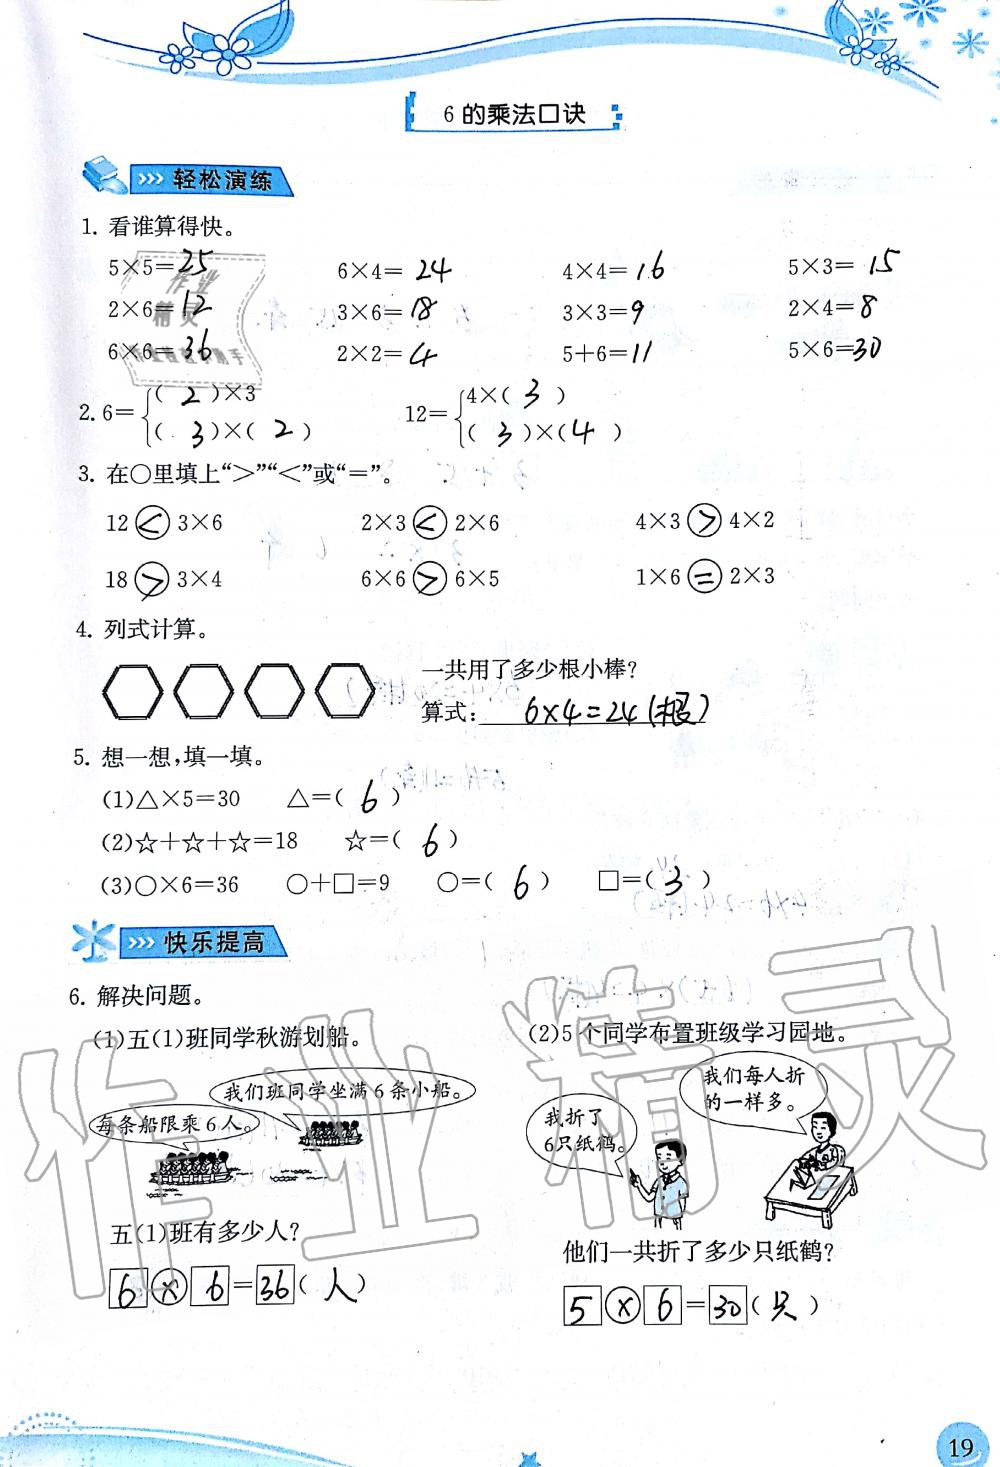 6的乘法口诀
轻松演练
1. 看谁算得快。
5×5=25 6×4=24 4×4=16 5×3=15
2×6=12 3×6=18 3×3=9 2×4=8
6×6=36 2×2=4 5+6=11 5×6=30
2. 6={(2)×3 12={4×(3)
(3)×(2) (3)×(4)
3. 在○里填上“>”“<”或“=”。
12<3×6 2×3<2×6 4×3>4×2
18>3×4 6×6>6×5 1×6=2×3
4. 列式计算。
一共用了多少根小棒?
算式: 6×4=24(根)
5. 想一想,填一填。
(1)△×5=30 △=(6)
(2)☆+☆+☆=18 ☆=(6)
(3)○×6=36 ○+□=9 ○=(6) □=(3)
快乐提高
6. 解决问题。
(1)五(1)班同学秋游划船。
我们班同学坐满6条小船。
每条船限乘6人。
五(1)班有多少人?
6×6=36(人)
(2)5个同学布置班级学习园地。
我们每人折
的一样多。
我折了
6只纸鹤。
他们一共折了多少只纸鹤?
5×6=30(只)
19
作业精灵
作业
精灵